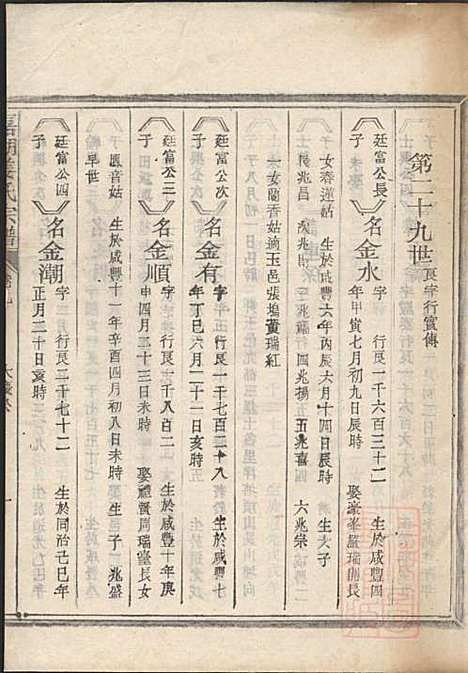 第二十九世良字行實傳
廷富公長子
名金水
字 行良一千六百三十二 生於咸豐四
年甲寅七月初九日辰時
子女春蓮姑 生於咸豐六年丙辰六月十四日辰時 生六子
長兆昌 次兆財 三兆福 四兆揚 五兆喜 六兆宗
一女蘭香姑適玉邑張塢黃瑞紅
廷富公次子
名金有
字 行良一千七百二十八 生於咸豐七
年丁巳六月二十一日亥時
廷富公三子
名金順
字 行良一千八百二 生於咸豐十年庚
申四月二十三日未時 娶禮賢周瑞臺長女
匯音姑 生於咸豐十一年辛酉四月初八日未時 生子一兆盛
早世
廷富公四子
名金潮
字 行良二千七十二 生於同治己巳年
正月二十日亥時
氏宗譜